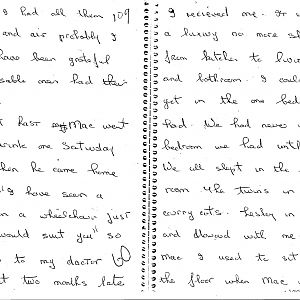 I had all them jog
and air probably I
have been grateful
sable men had their
t last Mac went
drink one Saturday
hen he came home
"I have seen a
n a wheelchair just
would suit you" so
to my doctor
t two months late
I recieved one. It w
a luxury no more sh
from kitchen to livin
and bathroom. I could
get in the one bed
had. We had never u
bedroom we had with
We all slept in the
room the twins in
carry cots. Lesley in
and
mac I used to sit
the floor when Mac w